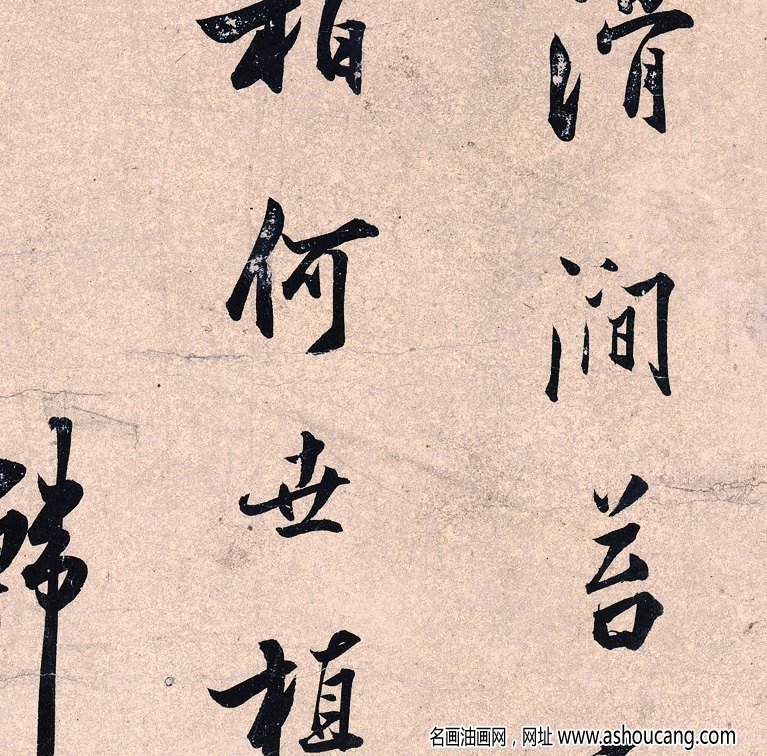 滑澗苔
柏何世植
名画油画网，网址 www.ashoucang.com